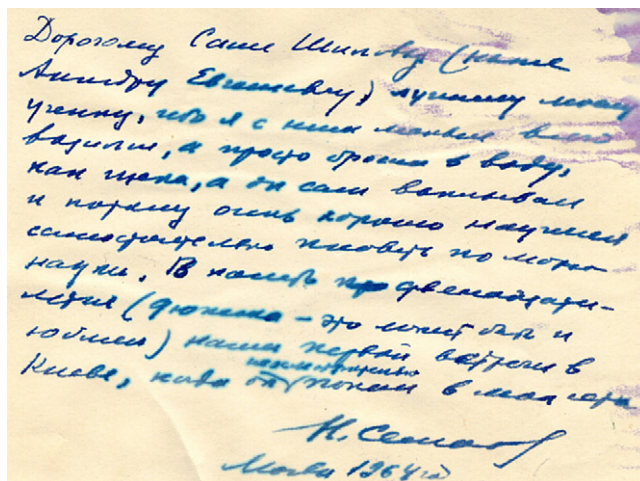 Дорогому Саше Шилову (ныне
Александру Евгеньевичу) лучшему моему
ученику, ибо я с ним меньше всего
возился, а просто бросил в воду,
как щенка, а он сам выплывал
и потому очень хорошо научился
самостоятельно плавать по морю
науки. В память двенадцати-
летия (дюжина – это может быть и
юбилей) нашей первой встречи в
Киеве, когда он попал в мои сети
Н. Семенов
Москва 1964 год